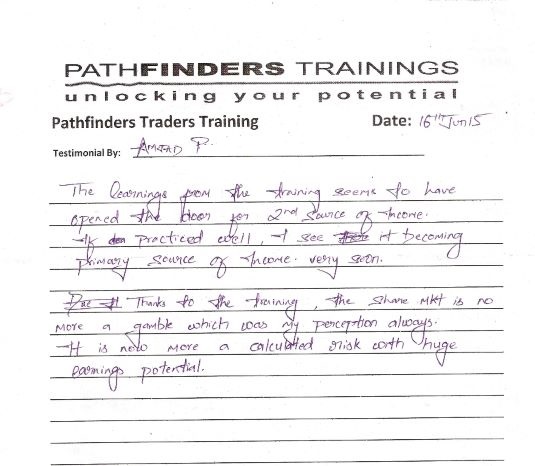 PATHFINDERS TRAININGS
unlocking your potential
Pathfinders Traders Training Date: 16th Jun 15
Testimonial By: AMJAD P.
The learnings from the training seems to have
opened the door for 2nd Source of Income.
If practiced well, I see it becoming
primary source of Income. very soon.
Thanks to the training, the share mkt is no
more a gamble which was my perception always.
It is now more a calculated risk with huge
earnings potential.